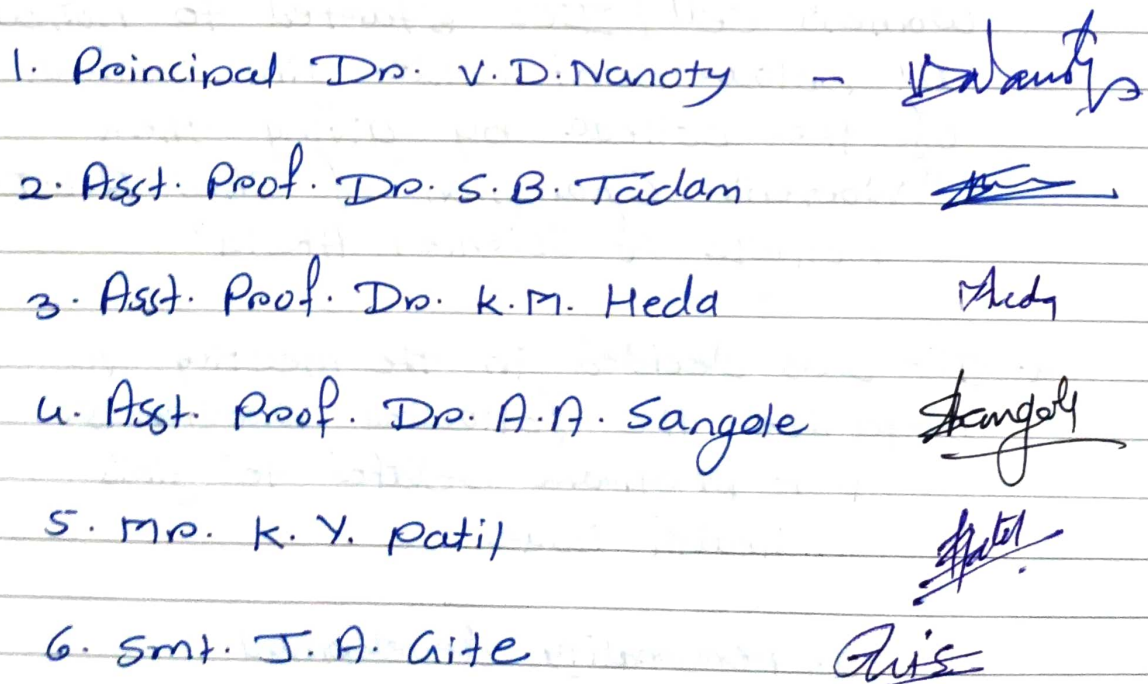 1. Principal Dr. V.D. Nanoty -
2. Asst. Prof. Dr. S.B. Tadam
3. Asst. Prof. Dr. K.M. Heda
4. Asst. Prof. Dr. A.A. Sangole
5. Mr. K.Y. Patil
6. Smt. J.A. Gite